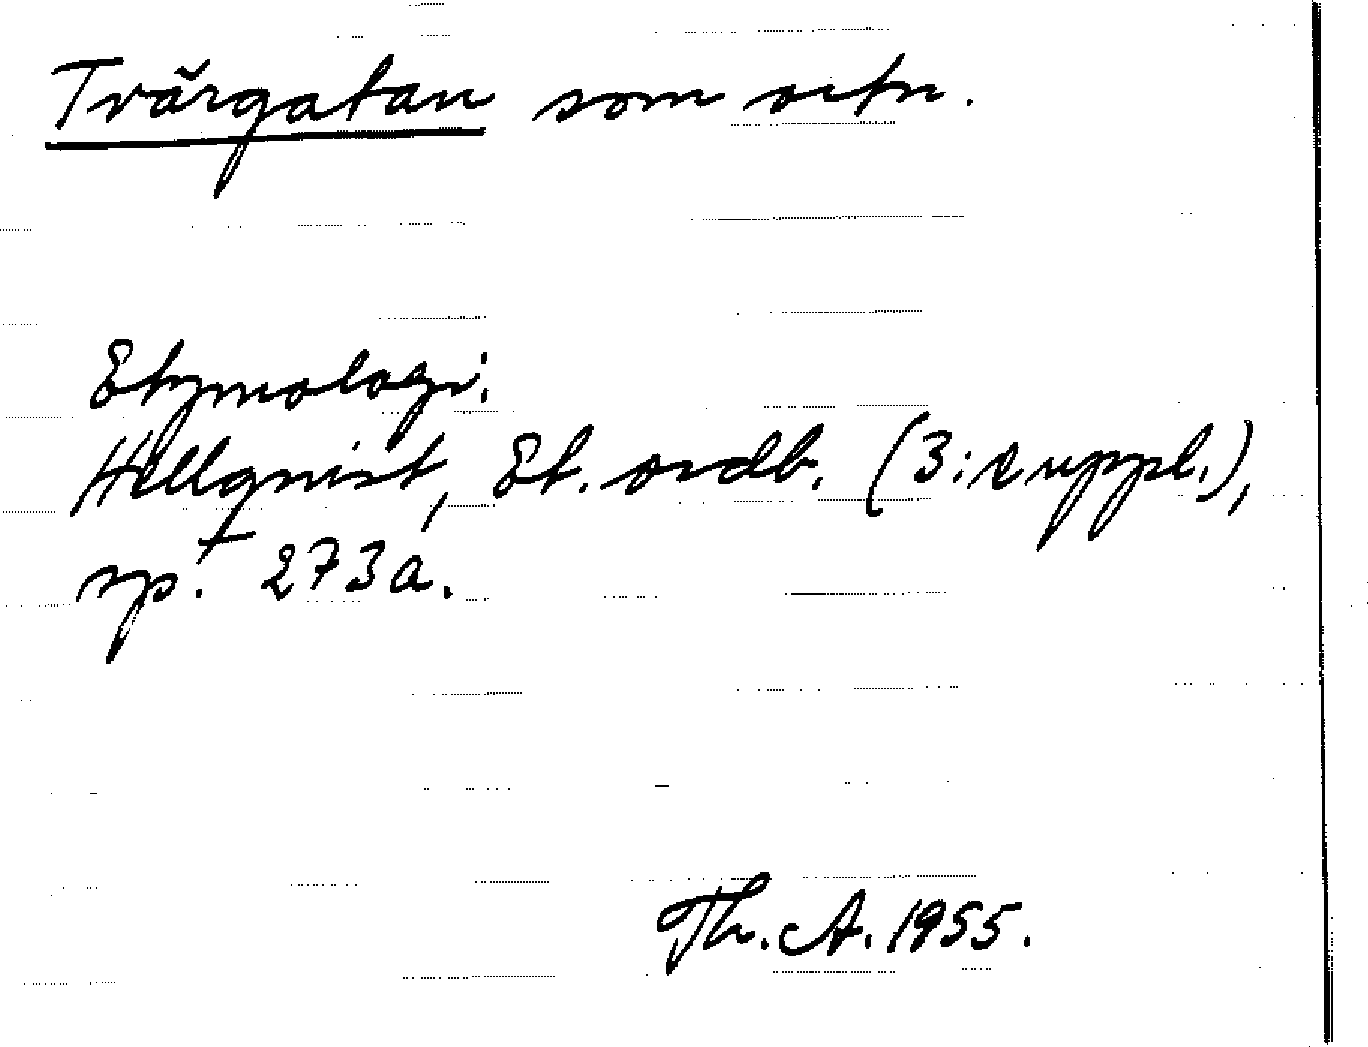 Tvärgatan som ortn.
Etymologi:
Hellquist, Et. ordb. (3:e uppl.),
sp. 273a.
Th. A. 1955.